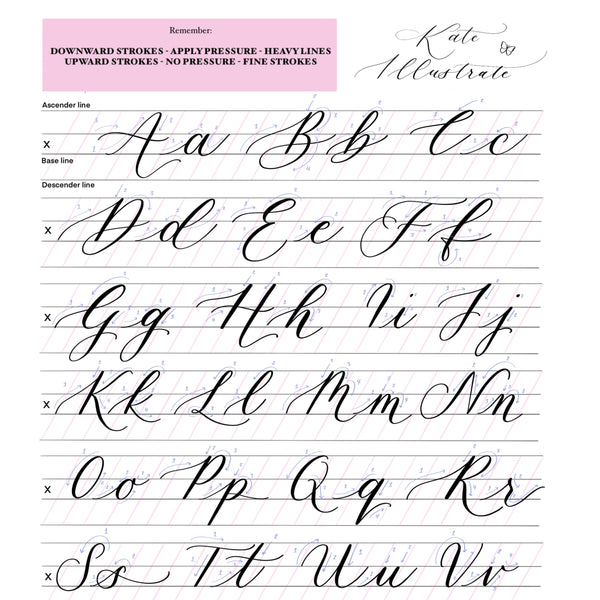 Remember:
DOWNWARD STROKES - APPLY PRESSURE - HEAVY LINES
UPWARD STROKES - NO PRESSURE - FINE STROKES
Kate
Illustrate
Ascender line
x
Base line
Descender line
Aa Bb Cc
x Dd Ee Ff
x Gg Hh Ii Jj
x Kk Ll Mm Nn
x Oo Pp Qq Rr
x Ss Tt Uu Vv